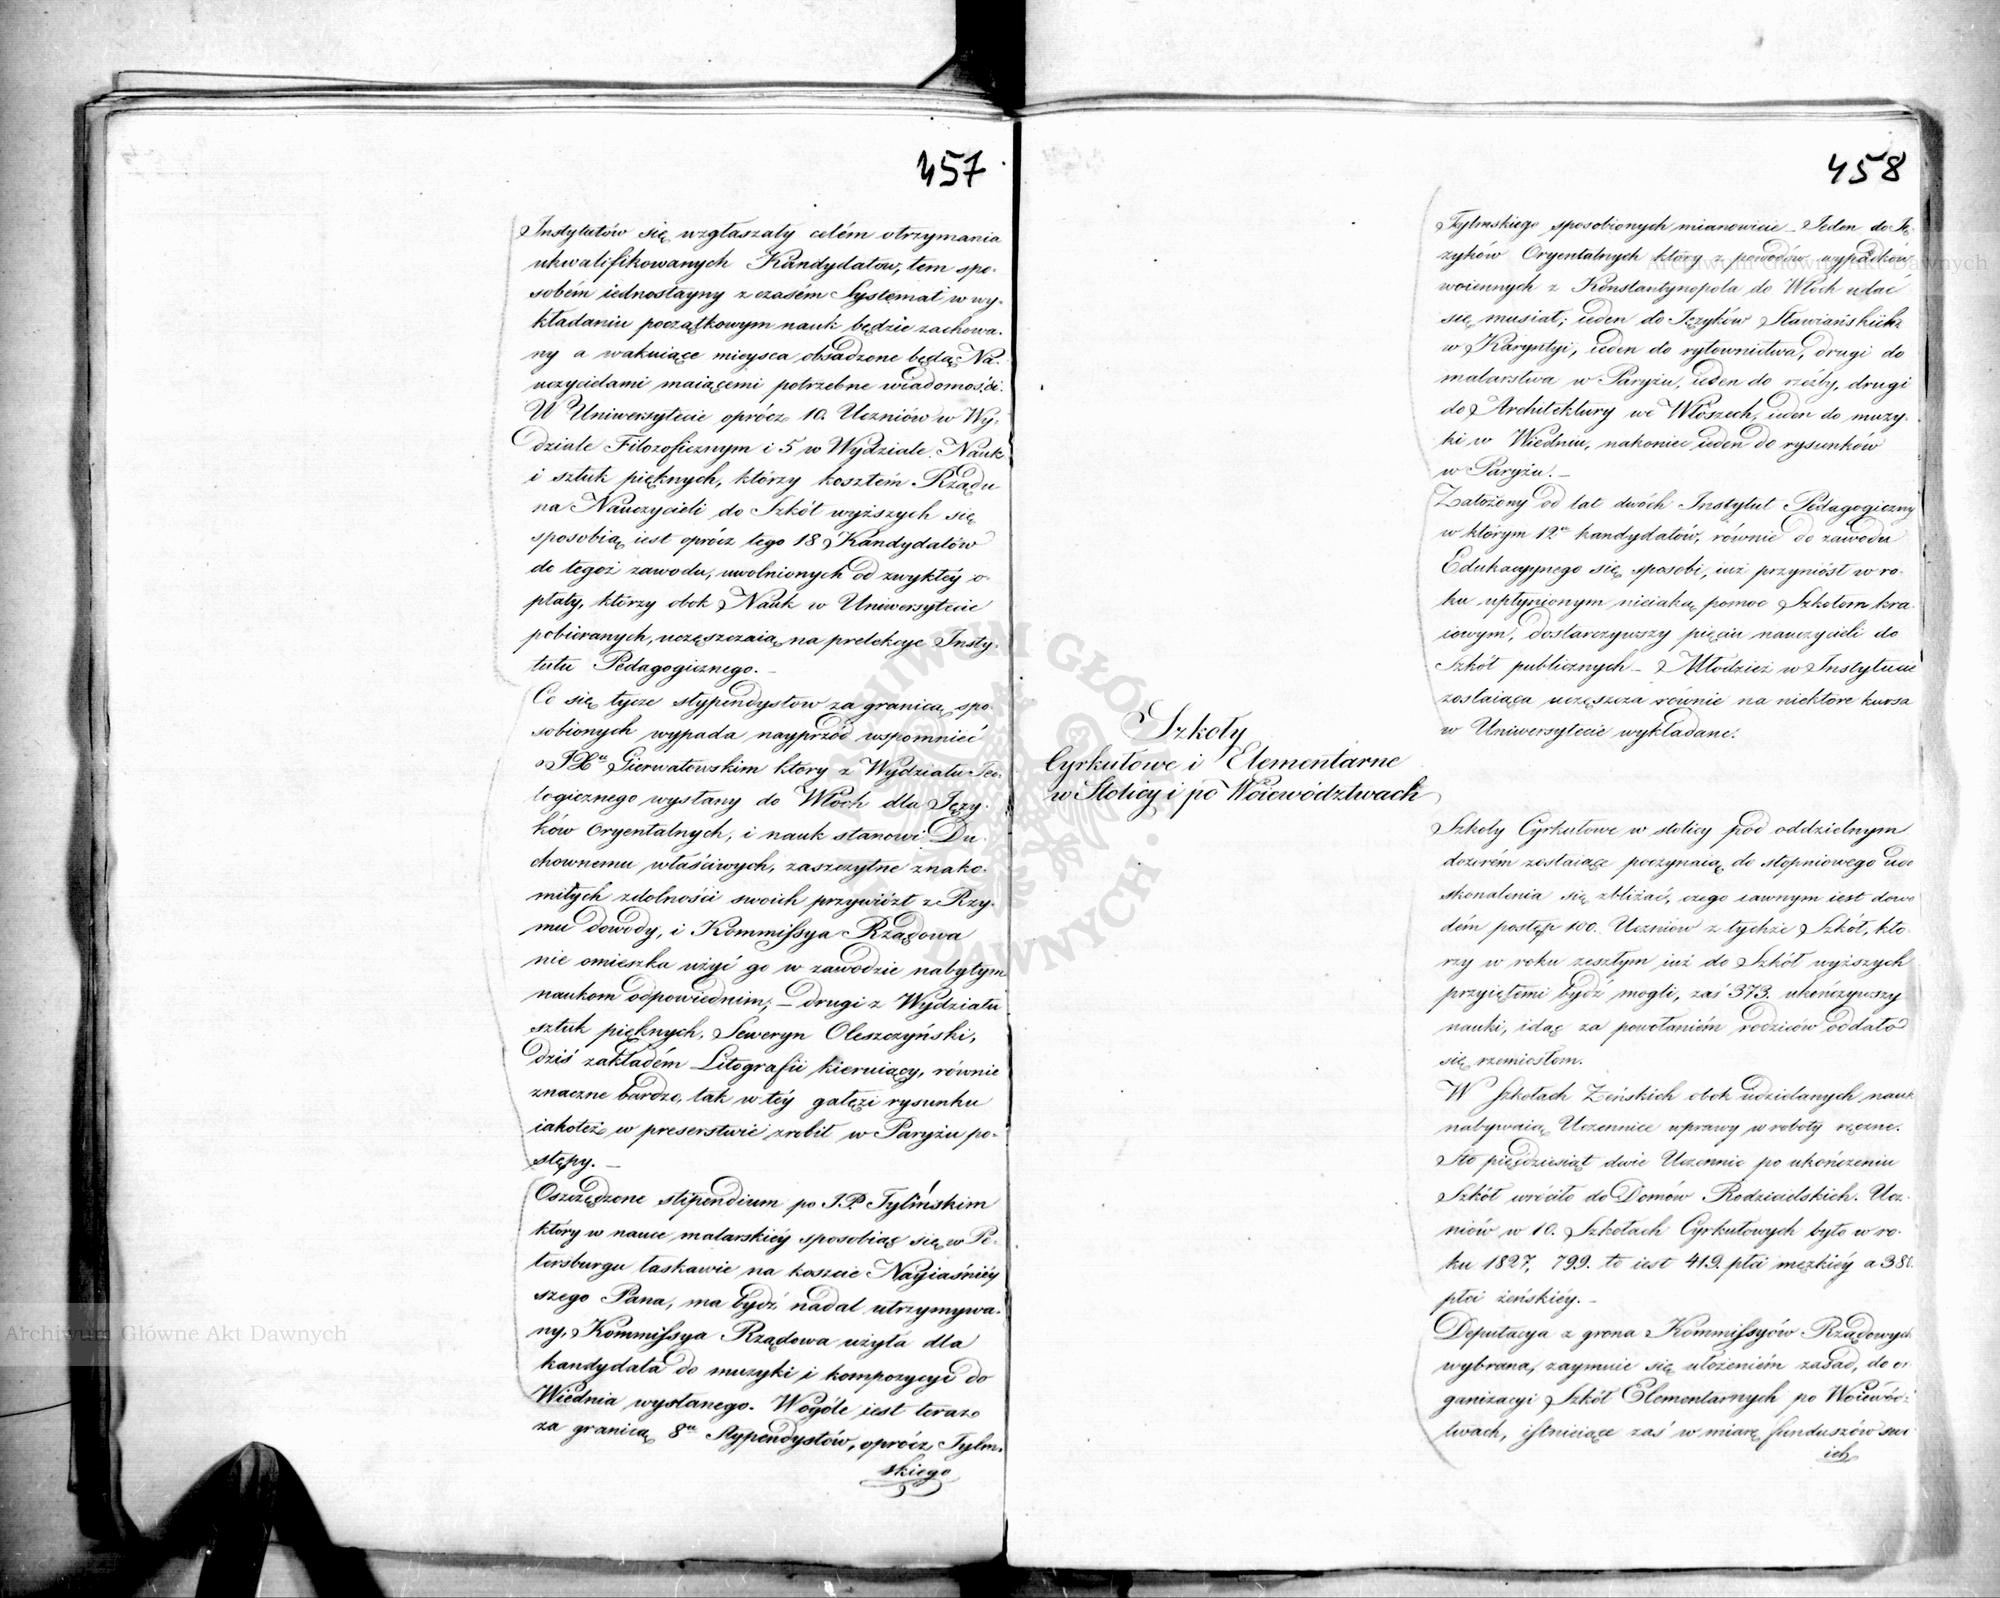 457
Instytutów się wzgłaszały celém otrzymania
ukwalifikowanych Kandydatow, tem spo-
sobém iednostayny z czasém Systemat w wy-
kładaniu początkowym nauk będzie zachowa-
ny a wakuiące mieysca obsadzone będą Na-
uczycielami maiącemi potrzebne wiadomości.
W Uniwersytecie oprócz 10. Uczniów w Wy-
dziale Filozoficznym i 5 w Wydziale Nauk
i sztuk pięknych, którzy kosztém Rządu
na Nauczycieli do Szkół wyższych się
sposobią iest oprócz tego 18 Kandydatów
do tegoż zawodu, uwolnionych od zwykłéy o-
płaty, którzy obok Nauk w Uniwersytecie
pobieranych, uczęszczaią na prelekcye Insty-
tutu Pedagogicznego. _
Co się tycze stypendystow za granicą spo-
sobionych wypada nayprzód wspomnieć
o Gierwatowskim ktory z Wydziału Teo-
logicznego wysłany do Włoch dla Języ-
ków Oryentalnych, i nauk stanowi Du-
chownemu właściwych, zaszczytne znako-
mitych zdolności swoich przywiózł z Rzy-
mu dowody, i Kommissya Rządowa
nie omieszka użyć go w zawodzie nabytym
naukom odpowiednim; _ drugi z Wydziału
sztuk pięknych, Seweryn Oleszczyński,
dziś zakładém Litografii kieruiący, równie
znaczne bardzo, tak w téy gałęzi rysunku
iakoteż w preserstwie zrobił w Paryżu po-
stępy. _
Oszczędzone stipendium po J.P. Tylińskim
który w nauce malarskiéy sposobiąc się w Pe-
tersburgu łaskawie na koszcie Nayiaśniéy
szego Pana, ma bydź nadal utrzymywa-
ny, Kommissya Rządowa użyła dla
kandydata do muzyki i kompozycyi do
Wiednia wysłanego. Wogóle iest teraz
za granicą 8u Stypendystów, oprócz Tyliń-
skiego
458
Tylińskiego sposobionych mianowicie _ Jeden do Ję-
zyków Oryentalnych który z powodów wypadków
woiennych z Konstantynopola do Włoch udać
się musiał; ieden do Języków Sławiańskich
w Karyntyi, ieden do rytownictwa, drugi do
malarstwa w Paryżu, ieden do rzeźby, drugi
do Architektury we Włoszech, ieden do muzy-
ki w Wiedniu, nakoniec ieden do rysunków
w Paryżu. _
Założony od lat dwóch Instytut Pedagogiczny
w którym 12u kandydatów, równie do zawodu
Edukacyynego się sposobi, iuż przyniósł w ro-
ku upłynionym nieiaką pomoc Szkołom kra-
iowym, dostarczywszy pięciu nauczycieli do
Szkół publicznych _ Młodzież w Instytucie
zostaiąca uczęszcza równie na niektóre kursa
w Uniwersytecie wykładane.
Szkoły
Cyrkułowe i Elementarne
w Stolicy i po Woiewództwach
Szkoły Cyrkułowe w stolicy pod oddzielnym
dozorém zostaiące poczynaią do stopniowego udo
skonalenia się zbliżać, czego iawnym iest dowo
dém postęp 100. Uczniow z tychże Szkół, któ-
rzy w roku zeszłym iuż do Szkół wyższych
przyiętemi bydź mogli, zaś 373. ukończywszy
nauki, idąc za powołaniém rodziców oddało
się rzemiosłom.
W Szkołach Żeńskich obok udzielanych nauk
nabywaią Uczennice wprawy w roboty ręczne.
Sto pięćdziesiąt dwie Uczennic po ukończeniu
Szkół wróciło do Domów Rodzicielskich. Ucz-
niów w 10. Szkołach Cyrkułowych było w ro-
ku 1827, 799. to iest 419. płci męzkiéy a 380.
płci żeńskiéy. _
Deputacya z grona Kommissyów Rządowych
wybrana, zaymuie się ułożeniém zasad, do or
ganizacyi Szkół Elementarnych po Woiewódz-
twach, istnieiące zaś w miarę funduszów swo
ich
Archiwum Główne Akt Dawnych
Archiwum Główne Akt Dawnych